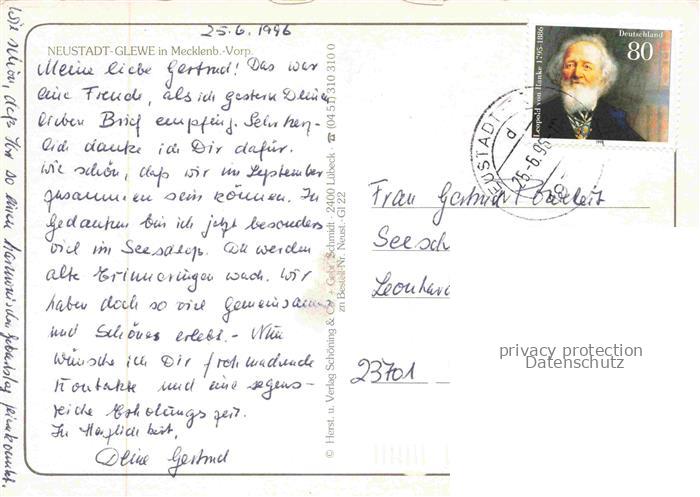 25.6.1996
NEUSTADT-GLEWE in Mecklenb.-Vorp.
Meine liebe Gertrud! Das war
eine Freude, als ich gestern Deinen
lieben Brief empfing. Sehr herz-
lich danke ich Dir dafür.
Wie schön, daß wir im September
zusammen sein können. In
Gedanken bin ich jetzt besonders
viel im Da werden
alte Erinnerungen wach. Wir
haben doch so viel Gemeinsames
und Schönes erlebt. - Nun
wünsche ich Dir
Kontakte und eine segens-
reiche Erholungszeit.
In Herzlichkeit,
Deine Gertrud
Wie schön, daß Ihr so einen harmonischen Geburtstag feiern konntet.
© Herst. u. Verlag Schöning & Co + Gebr. Schmidt · 2400 Lübeck ☎ (04 51) 310 310 0
zu Bestell-Nr. Neust.-Gl 22
Deutschland
80
Leopold von Ranke 1795-1886
NEUSTADT-
d
25.-6.96
Frau Gertrud
Seesch
Leonhard
23701
privacy protection
Datenschutz